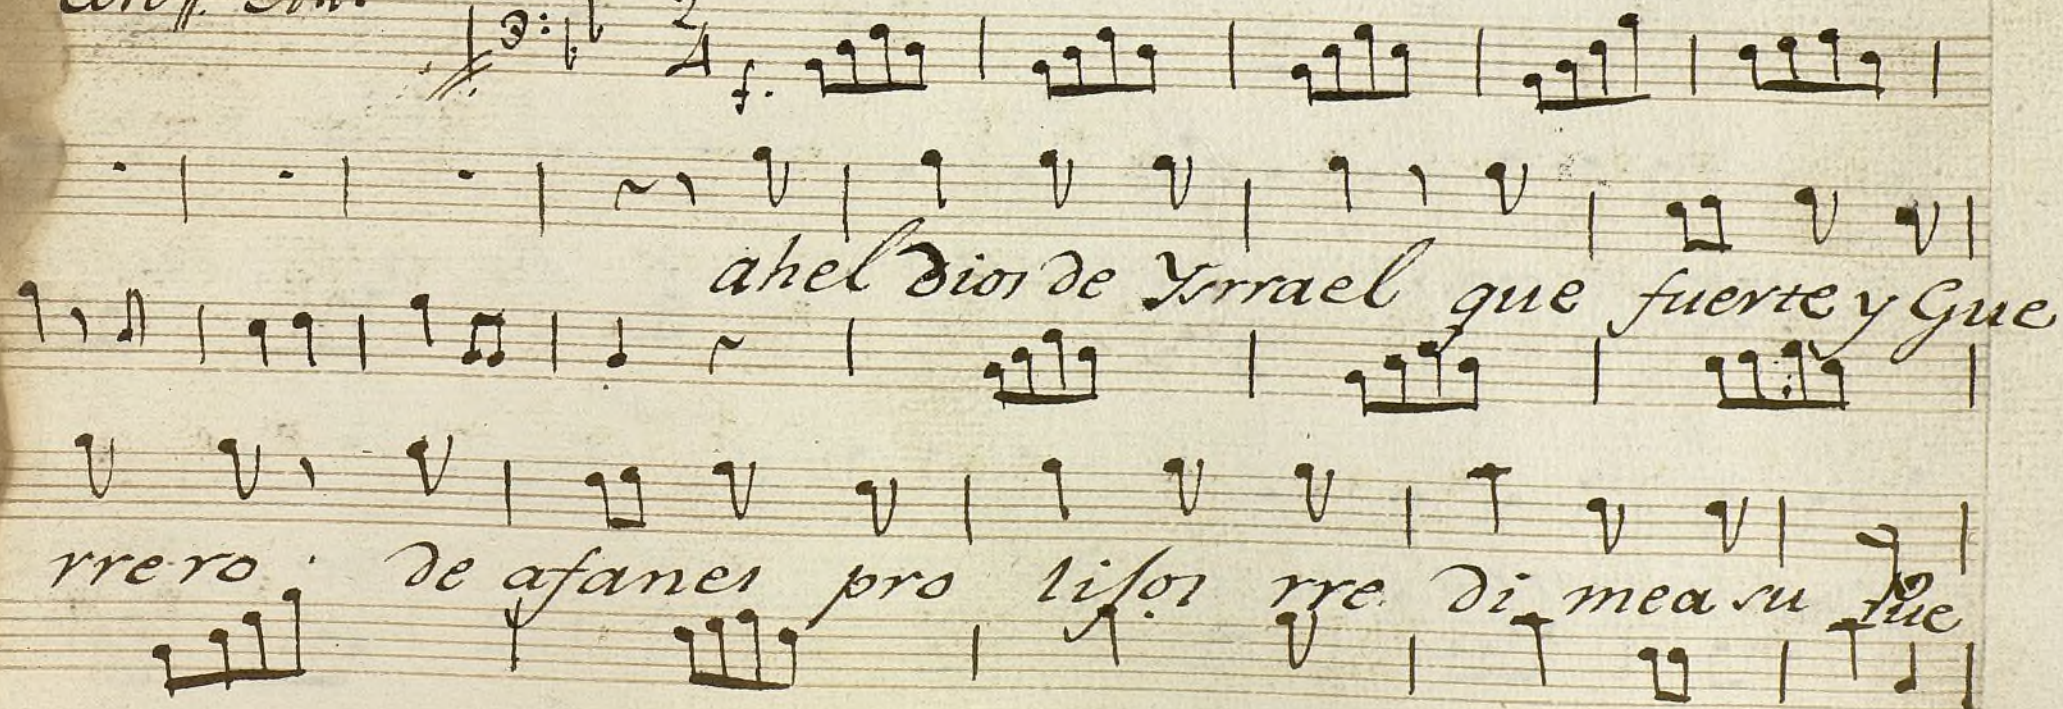 2/4
f.
ahel Dios de Ysrrael que fuerte y Gue
rrero de afanes pro lisos rre di mea su Pue